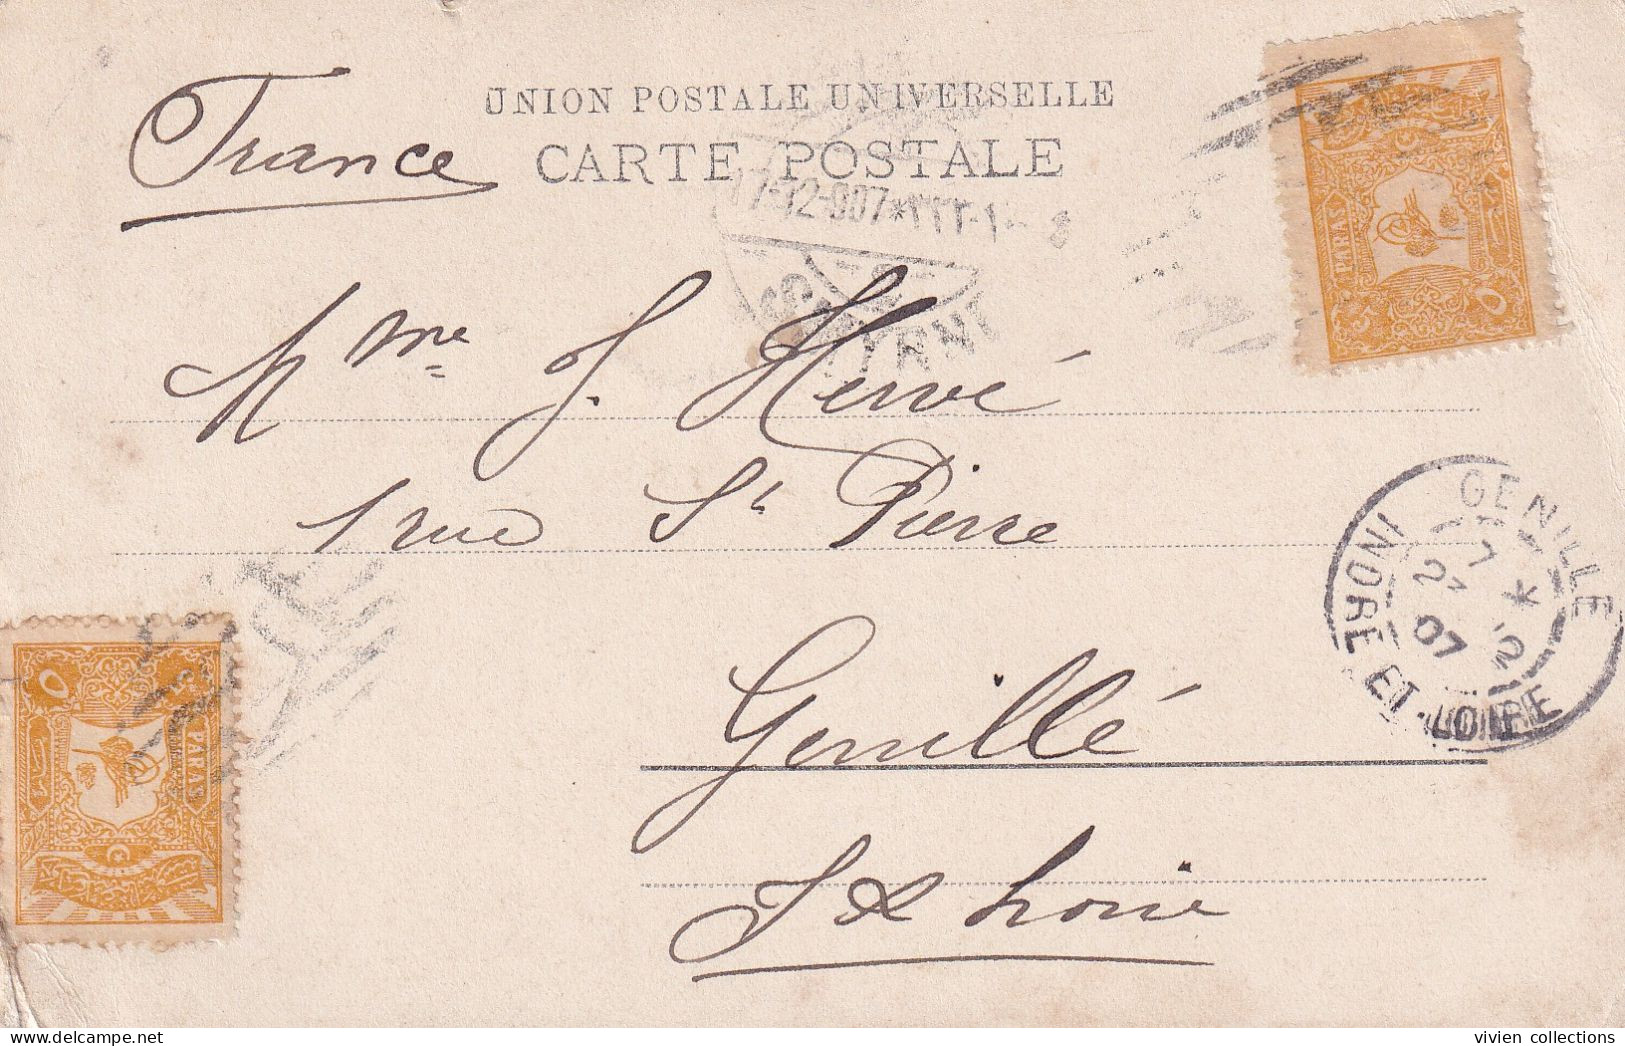 UNION POSTALE UNIVERSELLE
France
CARTE POSTALE
17-12-907*
SMYRNE
PARAS
٥
Mme J. Hervé
1 rue St Pierre
GENILLÉ
INDRE ET-LOIRE
07
PARAS
٥
Genillé
I & Loire
vivien collections